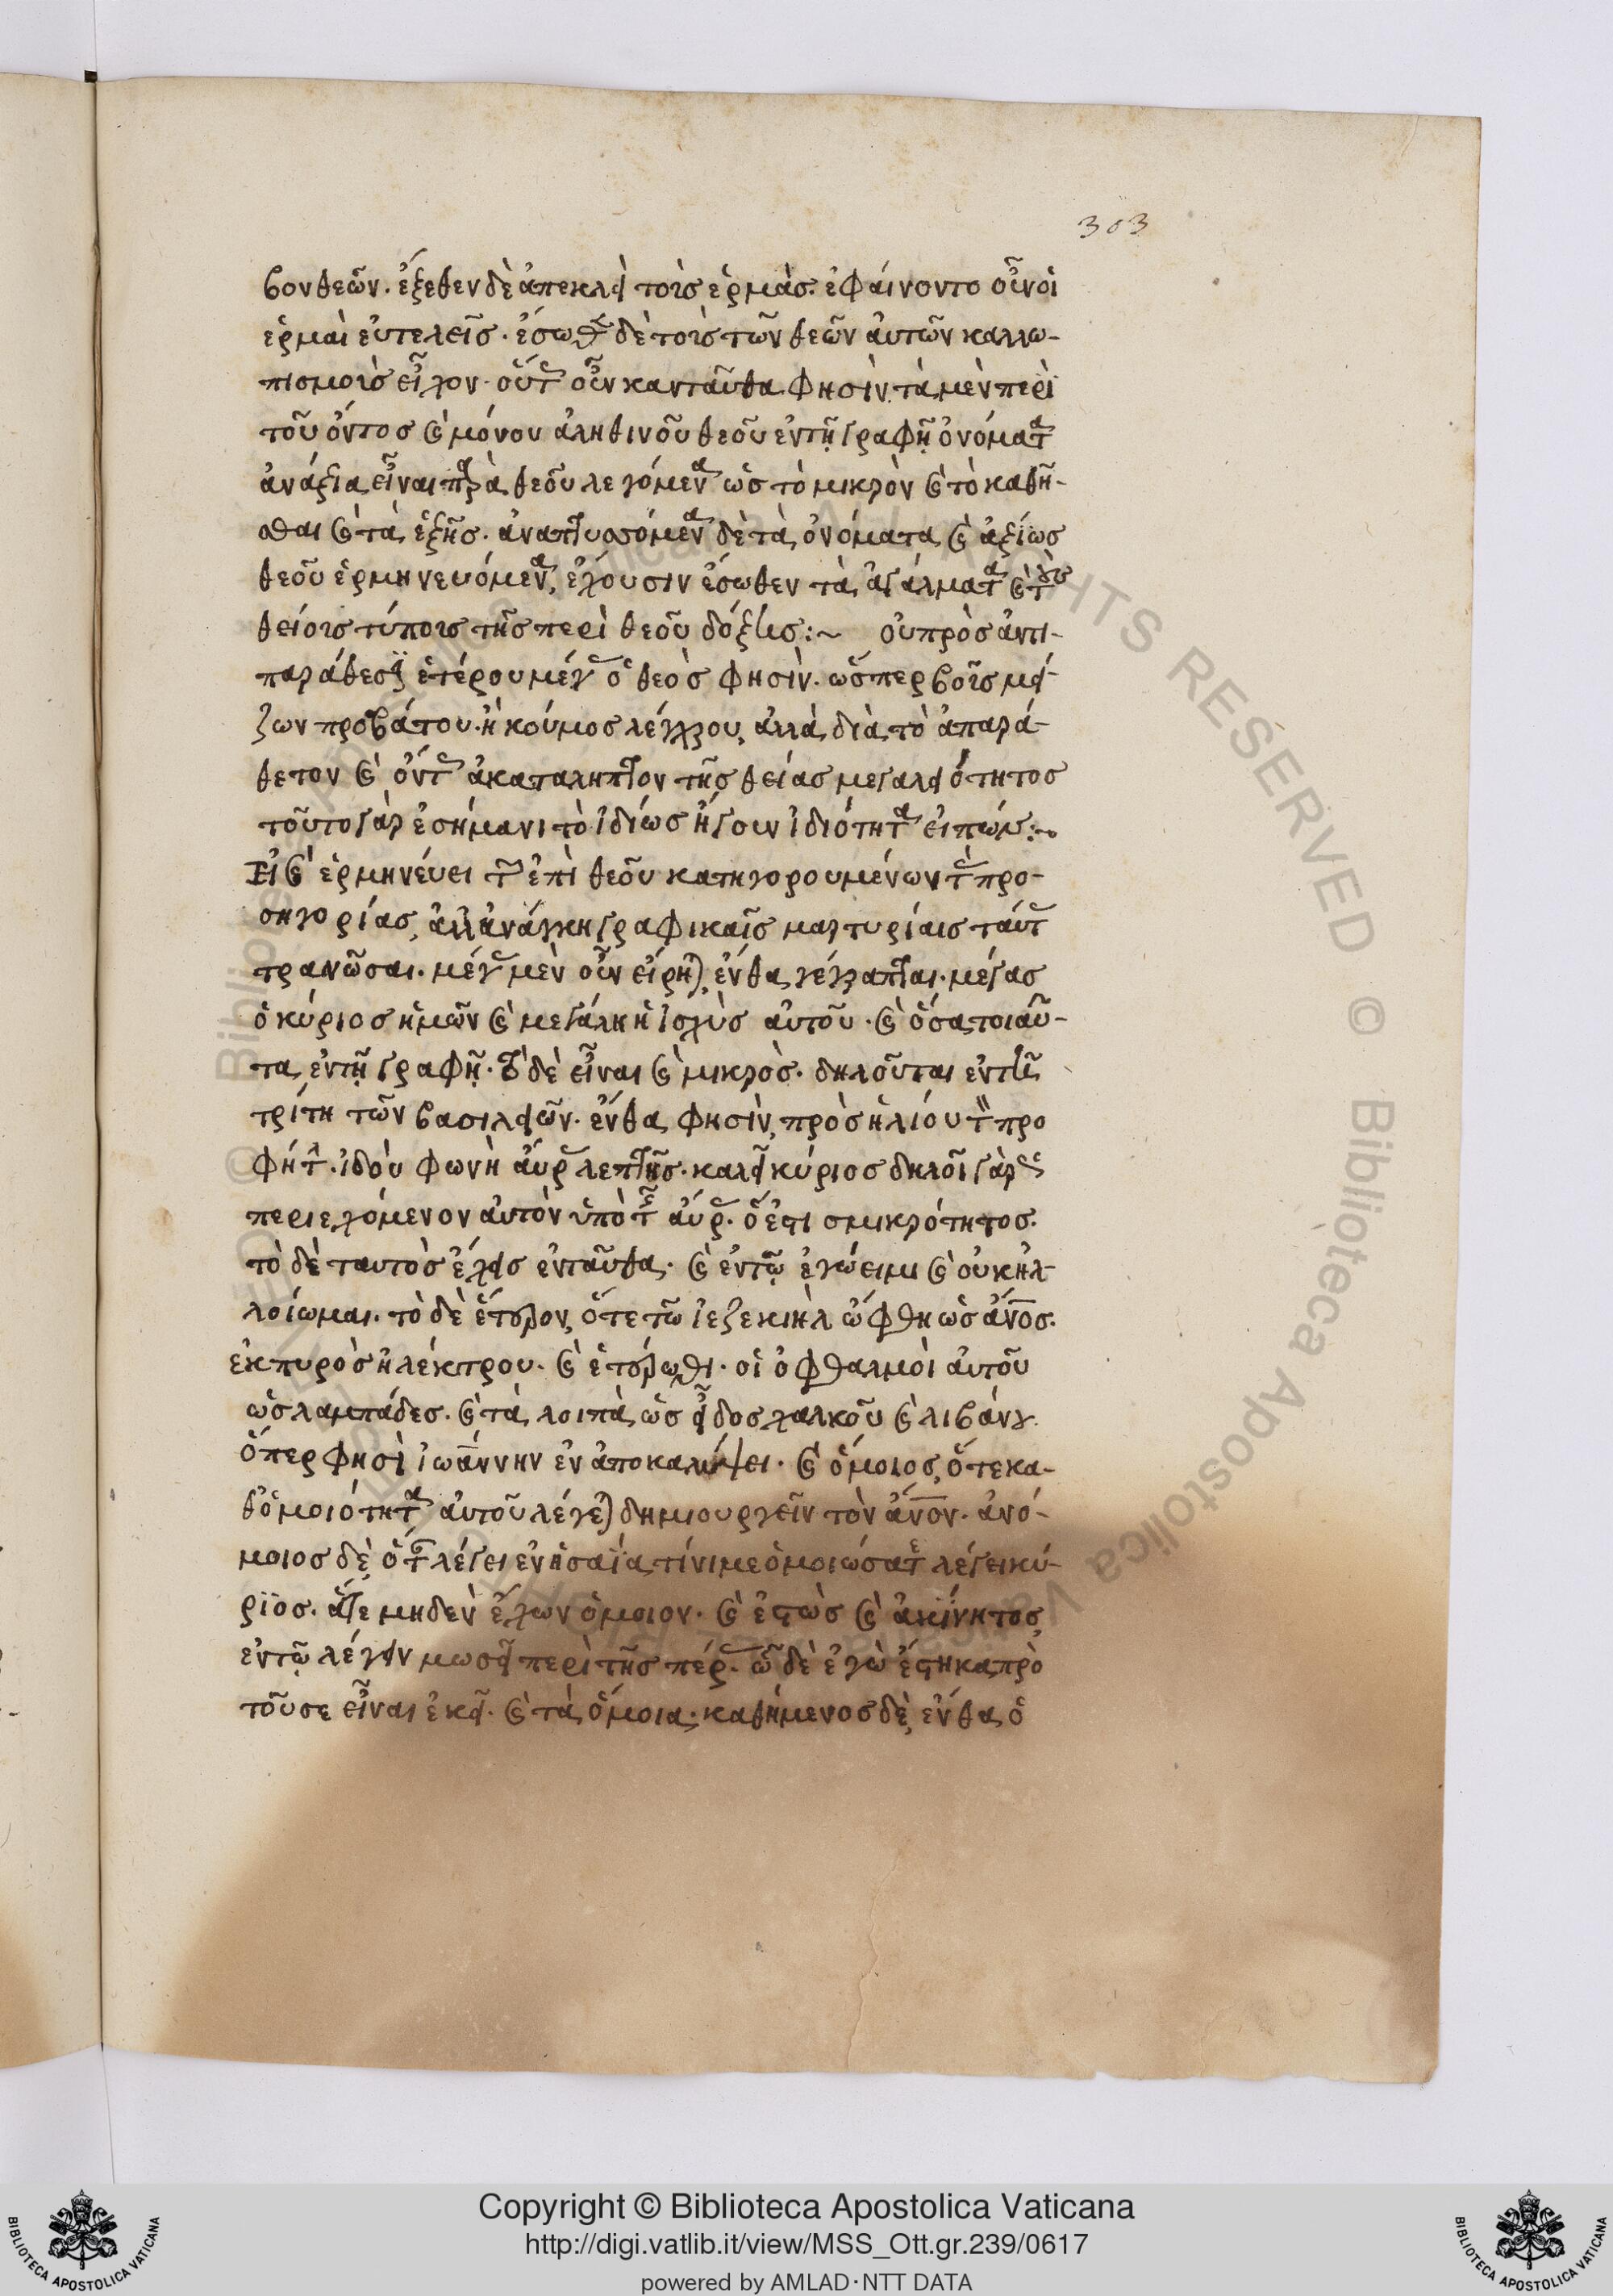 303
βον θεῶν. ἔξεθεν δὲ ἀπέκλει τοὶς ἑρμάς. ἐφαίνοντο οὖν οἱ
ἑρμαὶ εὐτελεῖς. ἔσωθεν δὲ τοὶς τῶν θεῶν αὐτῶν καλλω-
πισμοὶς εἶχον. οὕτως οὖν κανταῦθα φησὶν τὰ μὲν περὶ
τοῦ ὄντος καὶ μόνου ἀληθινοῦ θεοῦ ἐν τῇ γραφῇ ὀνόματα
ἀνάξια εἶναι παρὰ θεοῦ λεγόμενα ὡς τὸ μικρὸν καὶ τὸ καθῆ-
σθαι καὶ τὰ ἑξῆς. ἀναπτυσσόμενα δὲ τὰ ὀνόματα καὶ ἀξίως
θεοῦ ἑρμηνευόμενα, ἔχουσιν ἔσωθεν τὰ ἀγάλματα καὶ τοὺς
θείοις τύποις τῆς περὶ θεοῦ δόξης:~ οὐ πρὸς ἀντι-
παράθεσιν ἑτέρου μέγας ὁ θεός φησὶν. ὥσπερ βοῖς μεί-
ζων προβάτου. ἢ κούμος λέγχρου, ἀλλὰ διὰ τὸ ἀπαρά-
θετον καὶ ὄντως ἀκατάληπτον τῆς θείας μεγαλειότητος
τοῦτο γὰρ ἐσήμανι τὸ ἰδίως ἤγουν ἰδιότητα εἰπών:~
Εἰ καὶ ἑρμηνεύει τῶν ἐπὶ θεοῦ κατηγορουμένων τὰς προ-
σηγορίας, ἀλλ ἀνάγκη γραφικαῖς μαρτυρίαις ταύτας
τρανῶσαι. μέγας μὲν οὖν εἴρηται, ἔνθα γέγραπται. μέγας
ὁ κύριος ἡμῶν καὶ μεγάλη ἡ ἰσχὺς αὐτοῦ. καὶ ὅσα τοιαῦ-
τα ἐν τῇ γραφῇ. τὸ δὲ εἶναι καὶ μικρὸς. δηλοῦται ἐν τῇ
τρίτη τῶν βασιλειῶν. ἔνθα φησὶν, πρὸς ἡλίου τὸν προ
φήτην. ἰδοὺ φωνὴ αὔρας λεπτῆς. κακεῖ κύριος δηλοῖ γὰρ ὡς
περιεχόμενον αὐτὸν ὑπὸ τῆς αὔρας. ὅ ἐστι σμικρότητος.
τὸ δὲ ταυτὸς ἔχεις ἐνταῦθα. καὶ ἐν τῷ ἐγώ εἰμι καὶ οὐκ ἠλ-
λοίωμαι. τὸ δὲ ἕτερον, ὅτε τῶ ἰεζεκιὴλ ὤφθη ὡς ἄνος.
ἐκ πυρὸς ἠλέκτρου. καὶ ἑτέρωθι. οἱ ὀφθαλμοὶ αὐτοῦ
ὡς λαμπάδες. καὶ τὰ λοιπὰ ὡς εἶδος χαλκοῦ καὶ λιβάνου.
ὅπερ φησὶ ἰωάννην ἐν ἀποκαλύψει. καὶ ὅμοιος, ὅτε κα-
θ ὁμοιότητα αὐτοῦ λέγεται δημιουργεῖν τὸν ἄνον. ἀνό-
μοιος δὲ, ὅταν λέγει ἐν ἡσαΐα, τίνι με ὁμοιώσατε λέγει κύ-
ρϊος. ἅτε μηδὲν ἔχων ὅμοιον. καὶ ἑστὼς καὶ ἀκίνητος,
ἐν τῷ λέγειν μωσεῖ περὶ τῆς πέτρας. ὧδε ἐγὼ ἕστηκα πρὸ
τοῦ σε εἶναι ἐκεῖ. καὶ τὰ ὅμοια. καθήμενος δὲ, ἔνθα ὁ
Copyright © Biblioteca Apostolica Vaticana
http://digi.vatlib.it/view/MSS_Ott.gr.239/0617
powered by AMLAD·NTT DATA
BIBLIOTECA APOSTOLICA VATICANA
BIBLIOTECA APOSTOLICA VATICANA